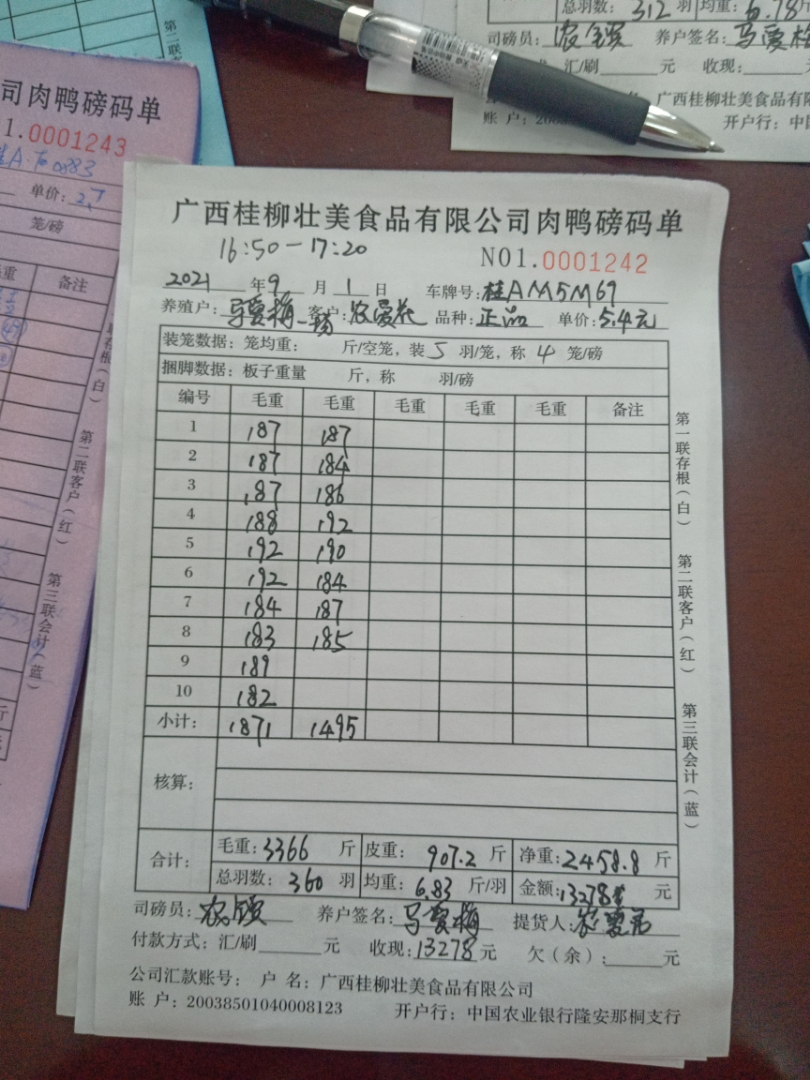 总羽数：312 羽 均重：6.78斤
司磅员： 养户签名：马爱梅
汇/刷 元 收现： 元
广西桂柳壮美食品有限
开户行：中国
第二联客
司肉鸭磅码单
1.0001243
单价：2.7
笼/磅
重 备注
第一联存根(白)
第二联客户(红)
第三联会计(蓝)
广西桂柳壮美食品有限公司肉鸭磅码单
16:50-17:20
NO1.0001242
2021 年 9 月 1 日 车牌号：桂AM5M69
养殖户：马爱梅 客户：农爱花 品种：正品 单价：5.4元
装笼数据：笼均重： 斤/空笼，装 5 羽/笼，称 4 笼/磅
捆脚数据：板子重量 斤，称 羽/磅
编号 毛重 毛重 毛重 毛重 毛重 备注
1 187 187
2 187 184
3 187 186
4 188 192
5 192 190
6 192 184
7 184 187
8 183 185
9 189
10 182
小计： 1871 1495
核算：
合计： 毛重：3366 斤 皮重：907.2 斤 净重：2458.8 斤
总羽数：360 羽 均重：6.83 斤/羽 金额：13278 元
司磅员： 养户签名：马爱梅 提货人：
付款方式：汇/刷 元 收现：13278 元 欠(余)： 元
公司汇款账号： 户 名：广西桂柳壮美食品有限公司
账 户：20038501040008123 开户行：中国农业银行隆安那桐支行
第一联存根(白)
第二联客户(红)
第三联会计(蓝)